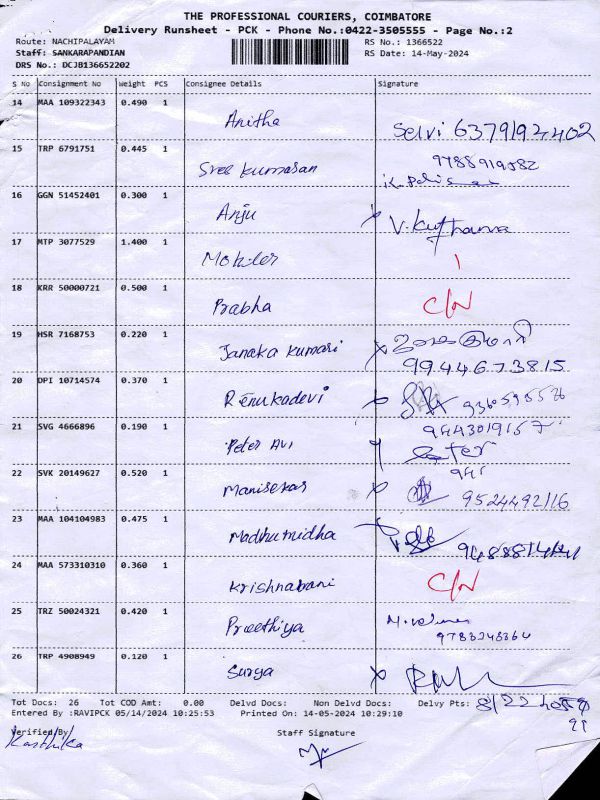 THE PROFESSIONAL COURIERS, COIMBATORE
Delivery Runsheet - PCK - Phone No.:0422-3505555 - Page No.:2
Route: NACHIPALAYAM
RS No.: 1366522
Staff: SANKARAPANDIAN
RS Date: 14-May-2024
DRS No.: DCJB136652202
S No Consignment No Weight PCS Consignee Details Signature
14 MAA 109322343 0.490 1 Anitha Selvi 6379192402
15 TRP 6791751 0.445 1 Sree Kumaran 9788919582
16 GGN 51452401 0.300 1 Anju
17 MTP 3077529 1.400 1
18 KRR 50000721 0.500 1 Prabha C/N
19 HSR 7168753 0.220 1 Janaka Kumari 9944673815
20 DPI 10714574 0.370 1 Renukadevi
21 SVG 4666896 0.190 1 Peter 9443019157
22 SVK 20149627 0.520 1 Manisekar 9524492116
23 MAA 104104983 0.475 1
24 MAA 573310310 0.360 1 Krishnabani C/N
25 TRZ 50024321 0.420 1 Preethiya
26 TRP 4908949 0.120 1 Surya
Tot Docs: 26 Tot COD Amt: 0.00 Delvd Docs: Non Delvd Docs: Delvy Pts:
Entered By :RAVIPCK 05/14/2024 10:25:53 Printed On: 14-05-2024 10:29:10
Verified By Staff Signature
Karthika